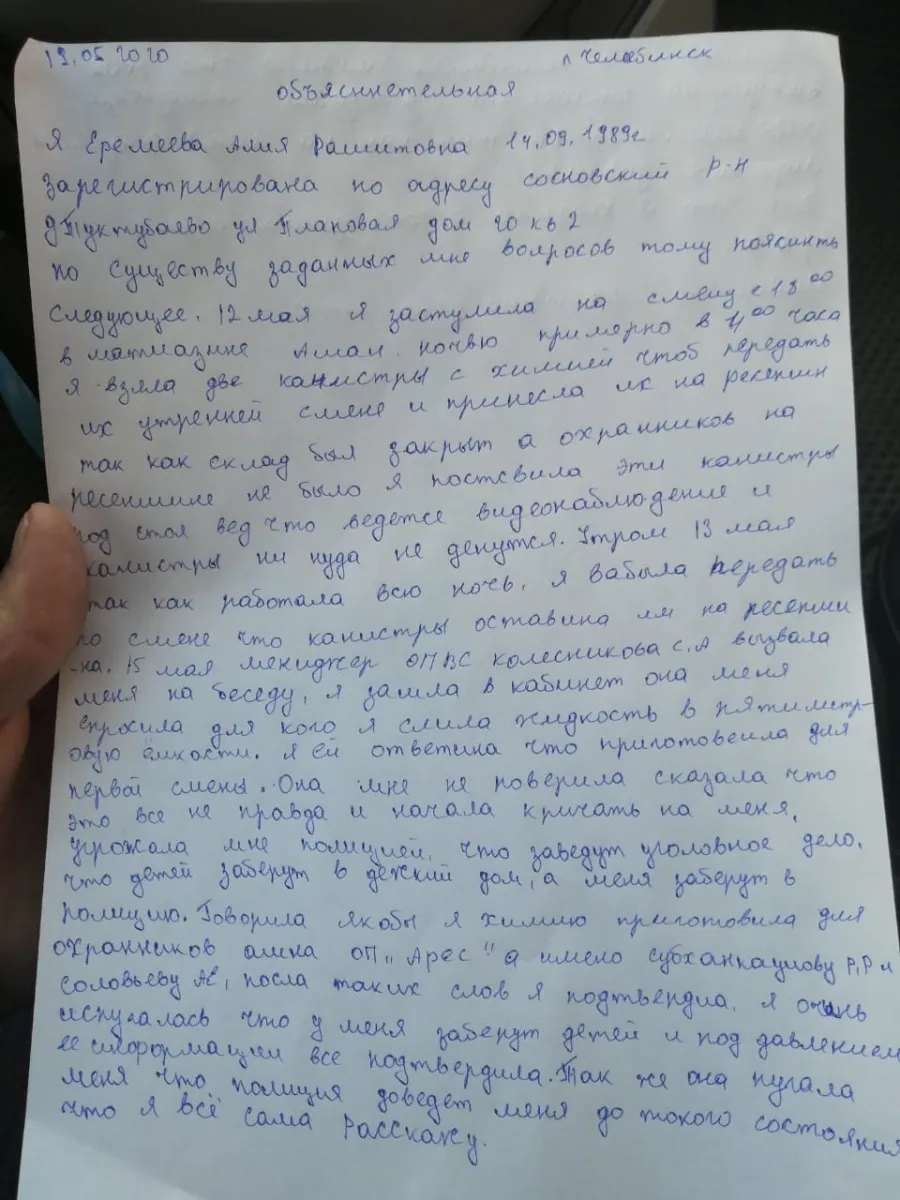 19.05 2020 г Челябинск
объяснетельная
Я Еремеева Алия Рашитовна 14.09.1989г
зарегистрирована по адресу сосновский р-н
д Туктубаево ул Плановая дом 20 кв 2
по существу заданных мне вопросов тому пояснить
следующее. 12 мая я заступила на смену с 18 00
в матмазине Ашан. ночью примерно в 4 00 часа
я взяла две канистры с химией чтоб передать
их утренней смене и принесла их на ресепшн
так как склад был закрыт а охранников на
ресепшине не было я постсвила эти канистры
под стол вед что ведетсе видеонаблюдение и
канистры ни куда не денутся. Утром 13 мая
так как работала всю ночь, я забыла передать
по смене что канистры оставина им на ресепши
-на. 15 мая мениджер ОПВС колесникова с.А вызвала
меня на беседу, я зашла в кабинет она меня
спросила для кого я слила жидкость в пятилитр-
овую ёмкости. я ей ответила что приготовеила для
первой смены. Она мне не поверила сказала что
это все не правда и начала кричать на меня,
угрожала мне полицией, что заведут уголовное дело,
что детей заберут в децкий дом, а меня заберут в
полицию. Говорила якобы я химию приготовила для
охранников ашна ОП „Арес" а имено субханкаулову Р,Р и
соловьеву, посла таких слов я подтвендила, я очень
испугалась что у меня заберут детей и под давлением
ее информации все подтвердила. Так же она пугала
меня что полиция доведет меня до токого состояния
что я всё сама Расскажу.